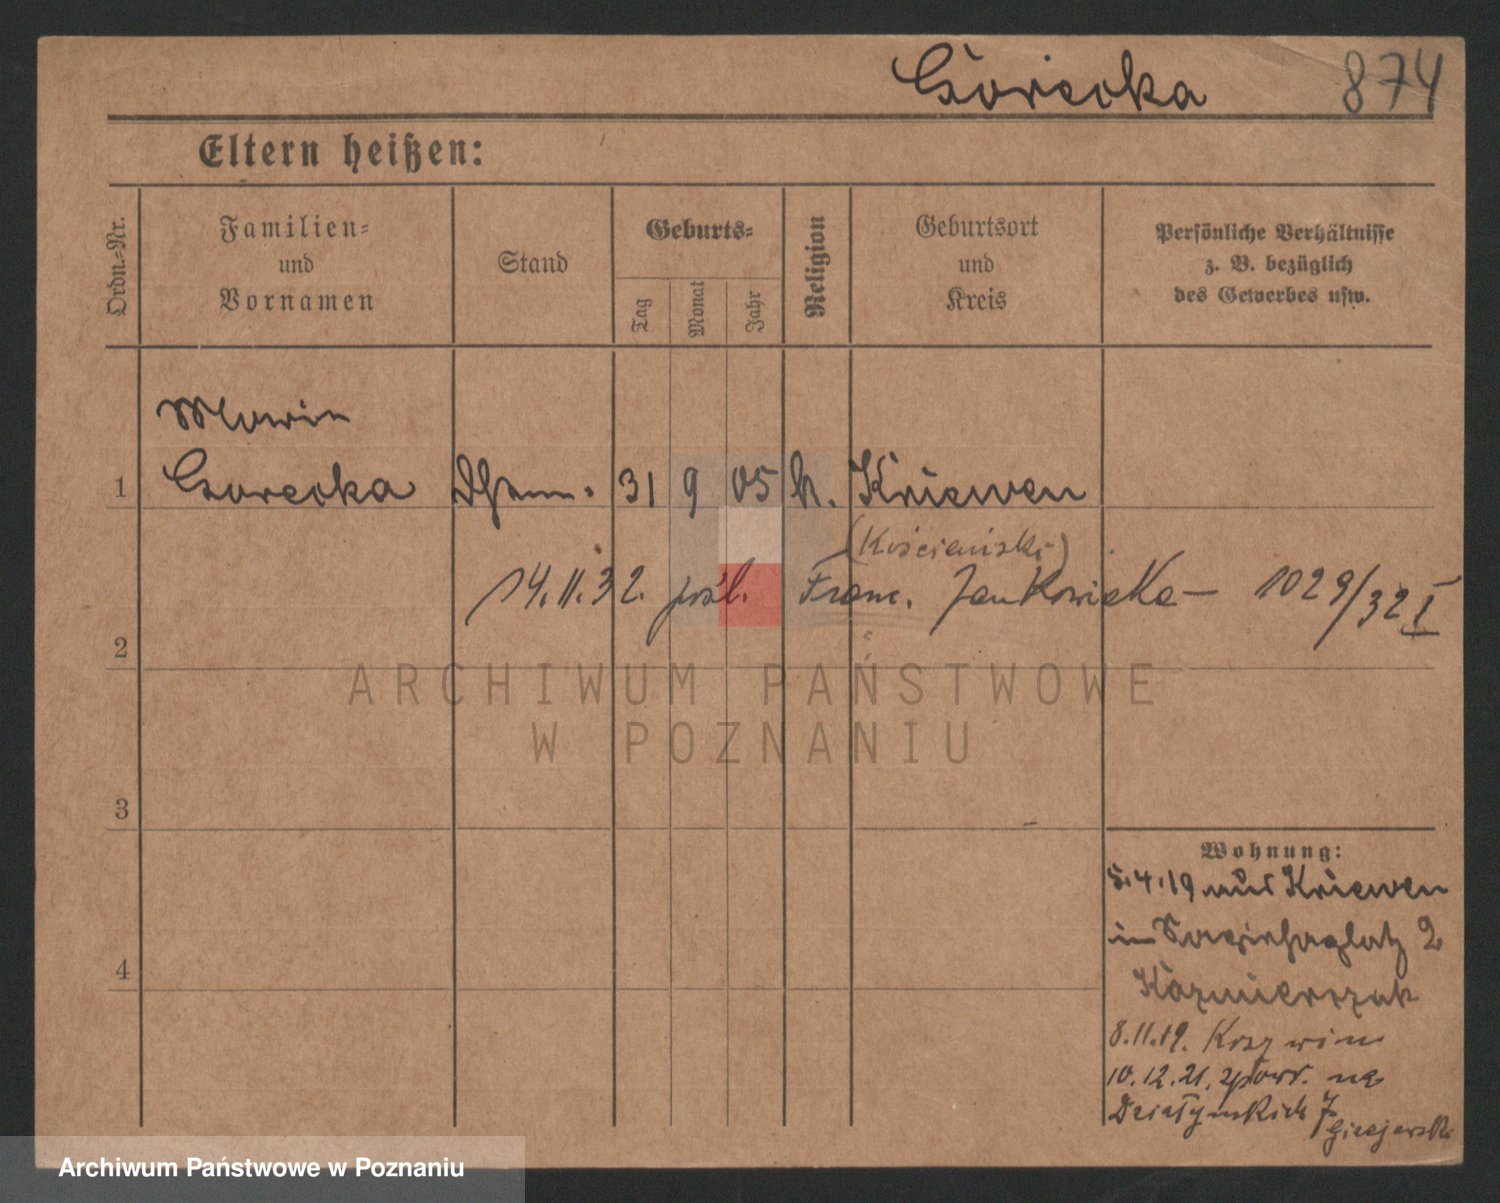 Gorecka 874
Eltern heißen:
Ordn.-Nr.
Familien-
und
Vornamen
Stand
Geburts-
Tag
Monat
Jahr
Religion
Geburtsort
und
Kreis
Persönliche Verhältnisse
z. B. bezüglich
des Gewerbes usw.
Marie
1 Gorecka 31 9 05 k. Kriewen
(Kościański)
14.11.32. pośl. Franc. Jankowiaka — 1029/32 I
2
ARCHIWUM PAŃSTWOWE
W POZNANIU
3
Wohnung:
5.4.19 aus Kriewen
in Sapiehaplatz 2
4
Kazmierczak
8.11.19. Krzywin
10.12.21. zpowr. na
Działyńskich 7
Archiwum Państwowe w Poznaniu